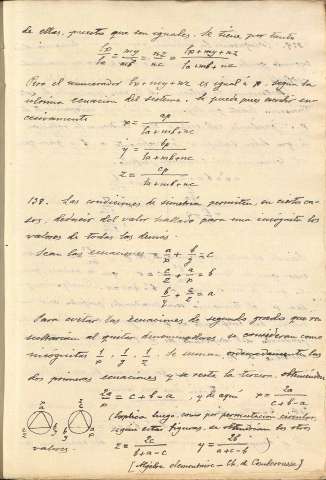 de ellas, puestos que son iguales. Se tiene por tanto
lp/la = my/mb = nz/nc = lp+my+nz/la+mb+nc
Pero el numerador lp+my+nz es igual á p, según la
última ecuación del sistema. Se puede pues escribir su-
cesivamente
x = ap/la+mb+nc
y = bp/la+mb+nc
z = cp/la+mb+nc
138. Las condiciones de simetría permiten, en ciertos ca-
sos, deducir del valor hallado para una incógnita los
valores de todas las demás.
Sean las ecuaciones a/p + b/y = c
c/z + a/p = b
b/y + c/z = a
Para evitar las ecuaciones de segundo grado que re
sultarían al quitar denominadores se consideran como
incógnitas 1/p, 1/y, 1/z. Se suman ordenadamente las
dos primeras ecuaciones y se resta la tercera. Obteniendo
2a/p = c+b-a, y de aquí p = 2a/c+b-a
(Explica luego como por permutación circular,
según estas figuras, se obtendrían los otros
valores. z = 2c/b+a-c y = 2b/a+c-b
[Algebra elementaire - Ch. de Comberousse]